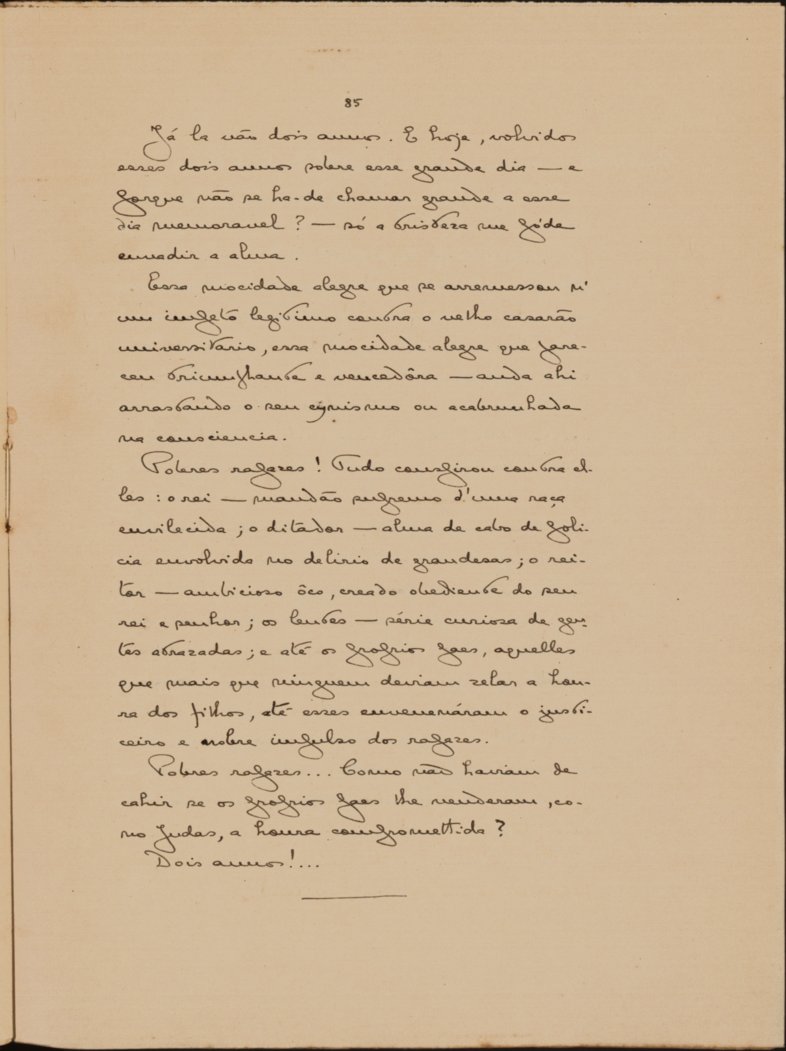 85
Já la vão dois annos. E hoje, volvidos
esses dois annos sobre esse grande dia — e
porque não se ha-de chamar grande a esse
dia memoravel? — só a tristeza me póde
envadir a alma.
Essa mocidade alegre que se arremessou n'
um impeto legitimo contra o velho casarão
universitario, essa mocidade alegre que pare-
ceu triumphante e vencedôra — anda ahi
arrastando o seu cynismo ou acabrunhada
na consciencia.
Pobres rapazes! Tudo conspirou contra el-
les: o rei — mandão supremo d'uma raça
envilecida; o ditador — alma de cabo de poli-
cia envolvida no delirio de grandesas; o rei-
tor — ambicioso ôco, creado obediente do seu
rei e senhor; os lentes — série curiosa de gen-
tes atrazadas; e até os proprios paes, aquelles
que mais que ninguem deviam zelar a hon-
ra dos filhos, até esses envenenáram o justi-
ceiro e nobre impulso dos rapazes.
Pobres rapazes... Como não haviam de
cahir se os proprios paes lhe venderam, co-
mo Judas, a honra compromettida?
Dois annos!...